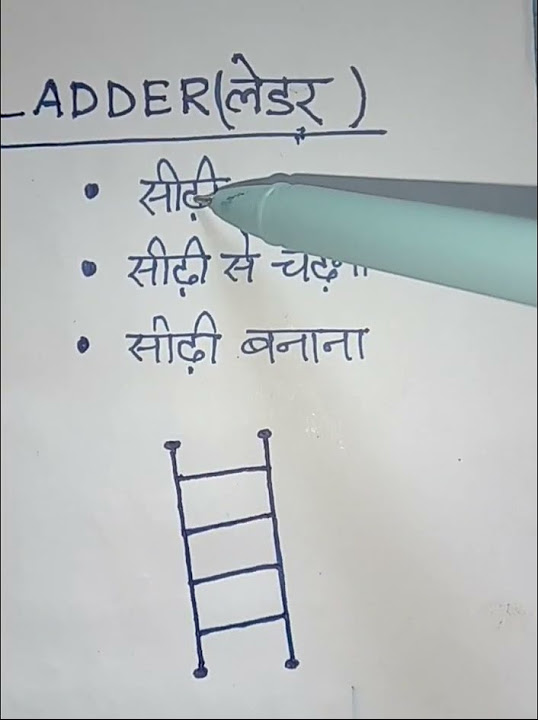 LADDER (लेडर )
• सीढ़ी
• सीढ़ी से चढ़ना
• सीढ़ी बनाना